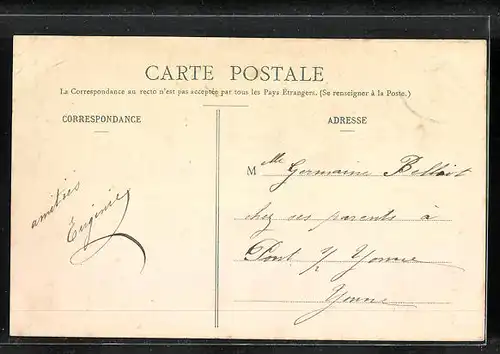 CARTE POSTALE
La Correspondance au recto n'est pas acceptée par tous les Pays Étrangers. (Se renseigner à la Poste.)
CORRESPONDANCE
ADRESSE
amitiés
Eugénie
Mlle Germaine
chez ses parents à
Pont s/ Yonne
Yonne